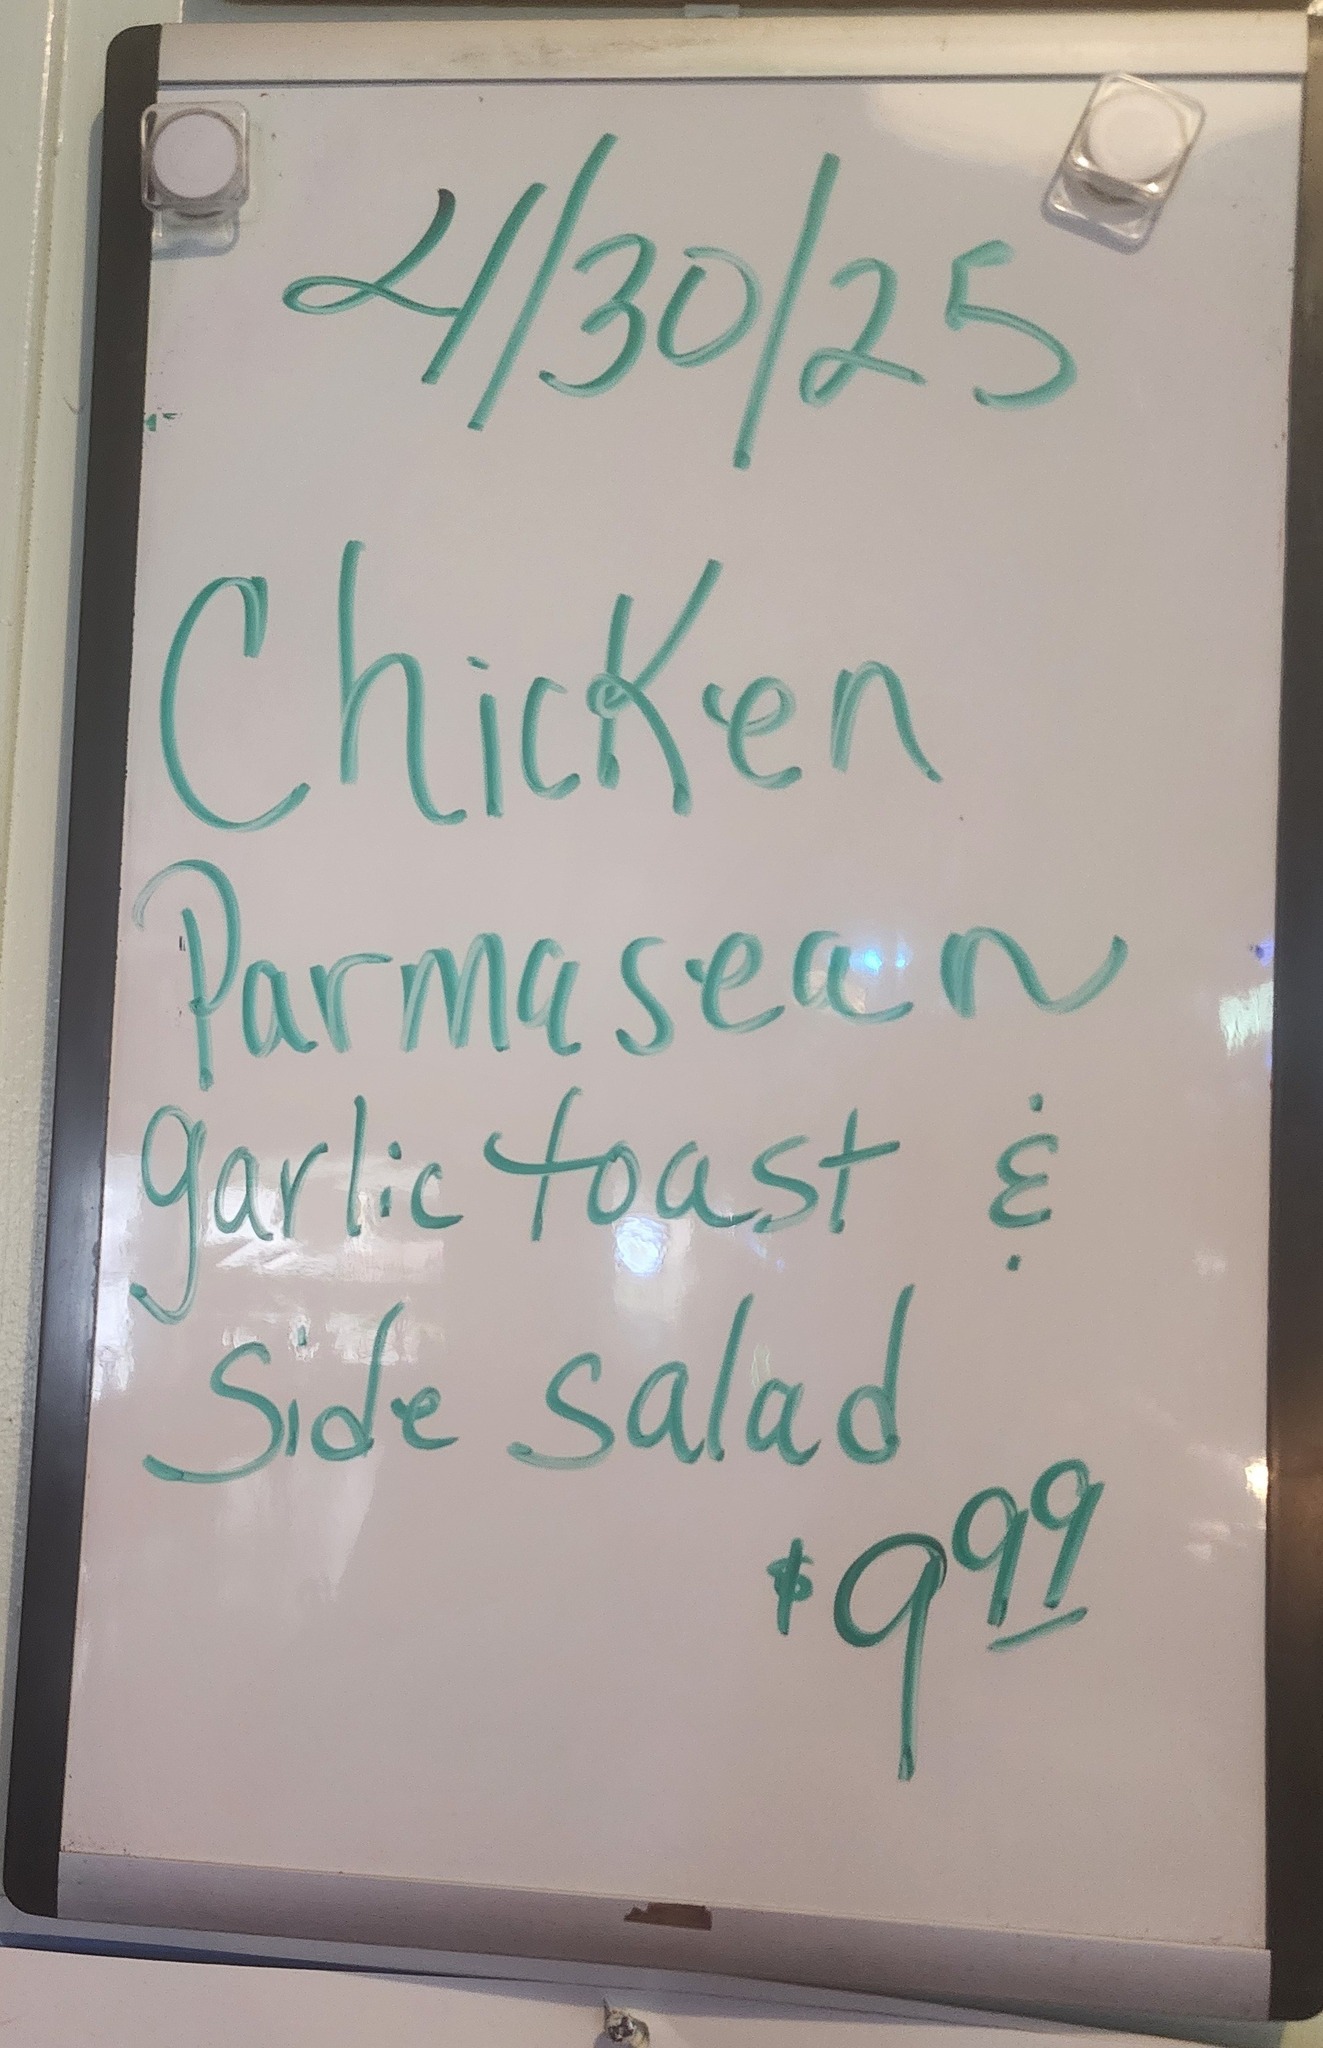 4/30/25
Chicken
Parmasean
garlic toast &
Side salad
$9.99